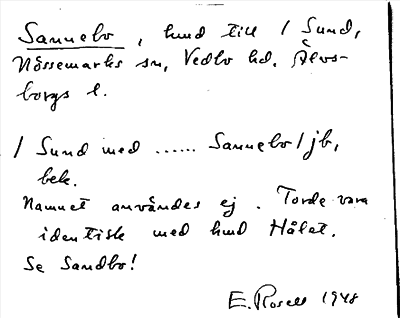 Sannebo, hmd till / Sund,
Nössemarks sn, Vedbo hd. Älvs-
borgs l.
/ Sund med ...... Sannebo / jb,
bek.
Namnet användes ej. Torde vara
identisk med hmd Hålet.
Se Sandbo!
E. Rosell 1948